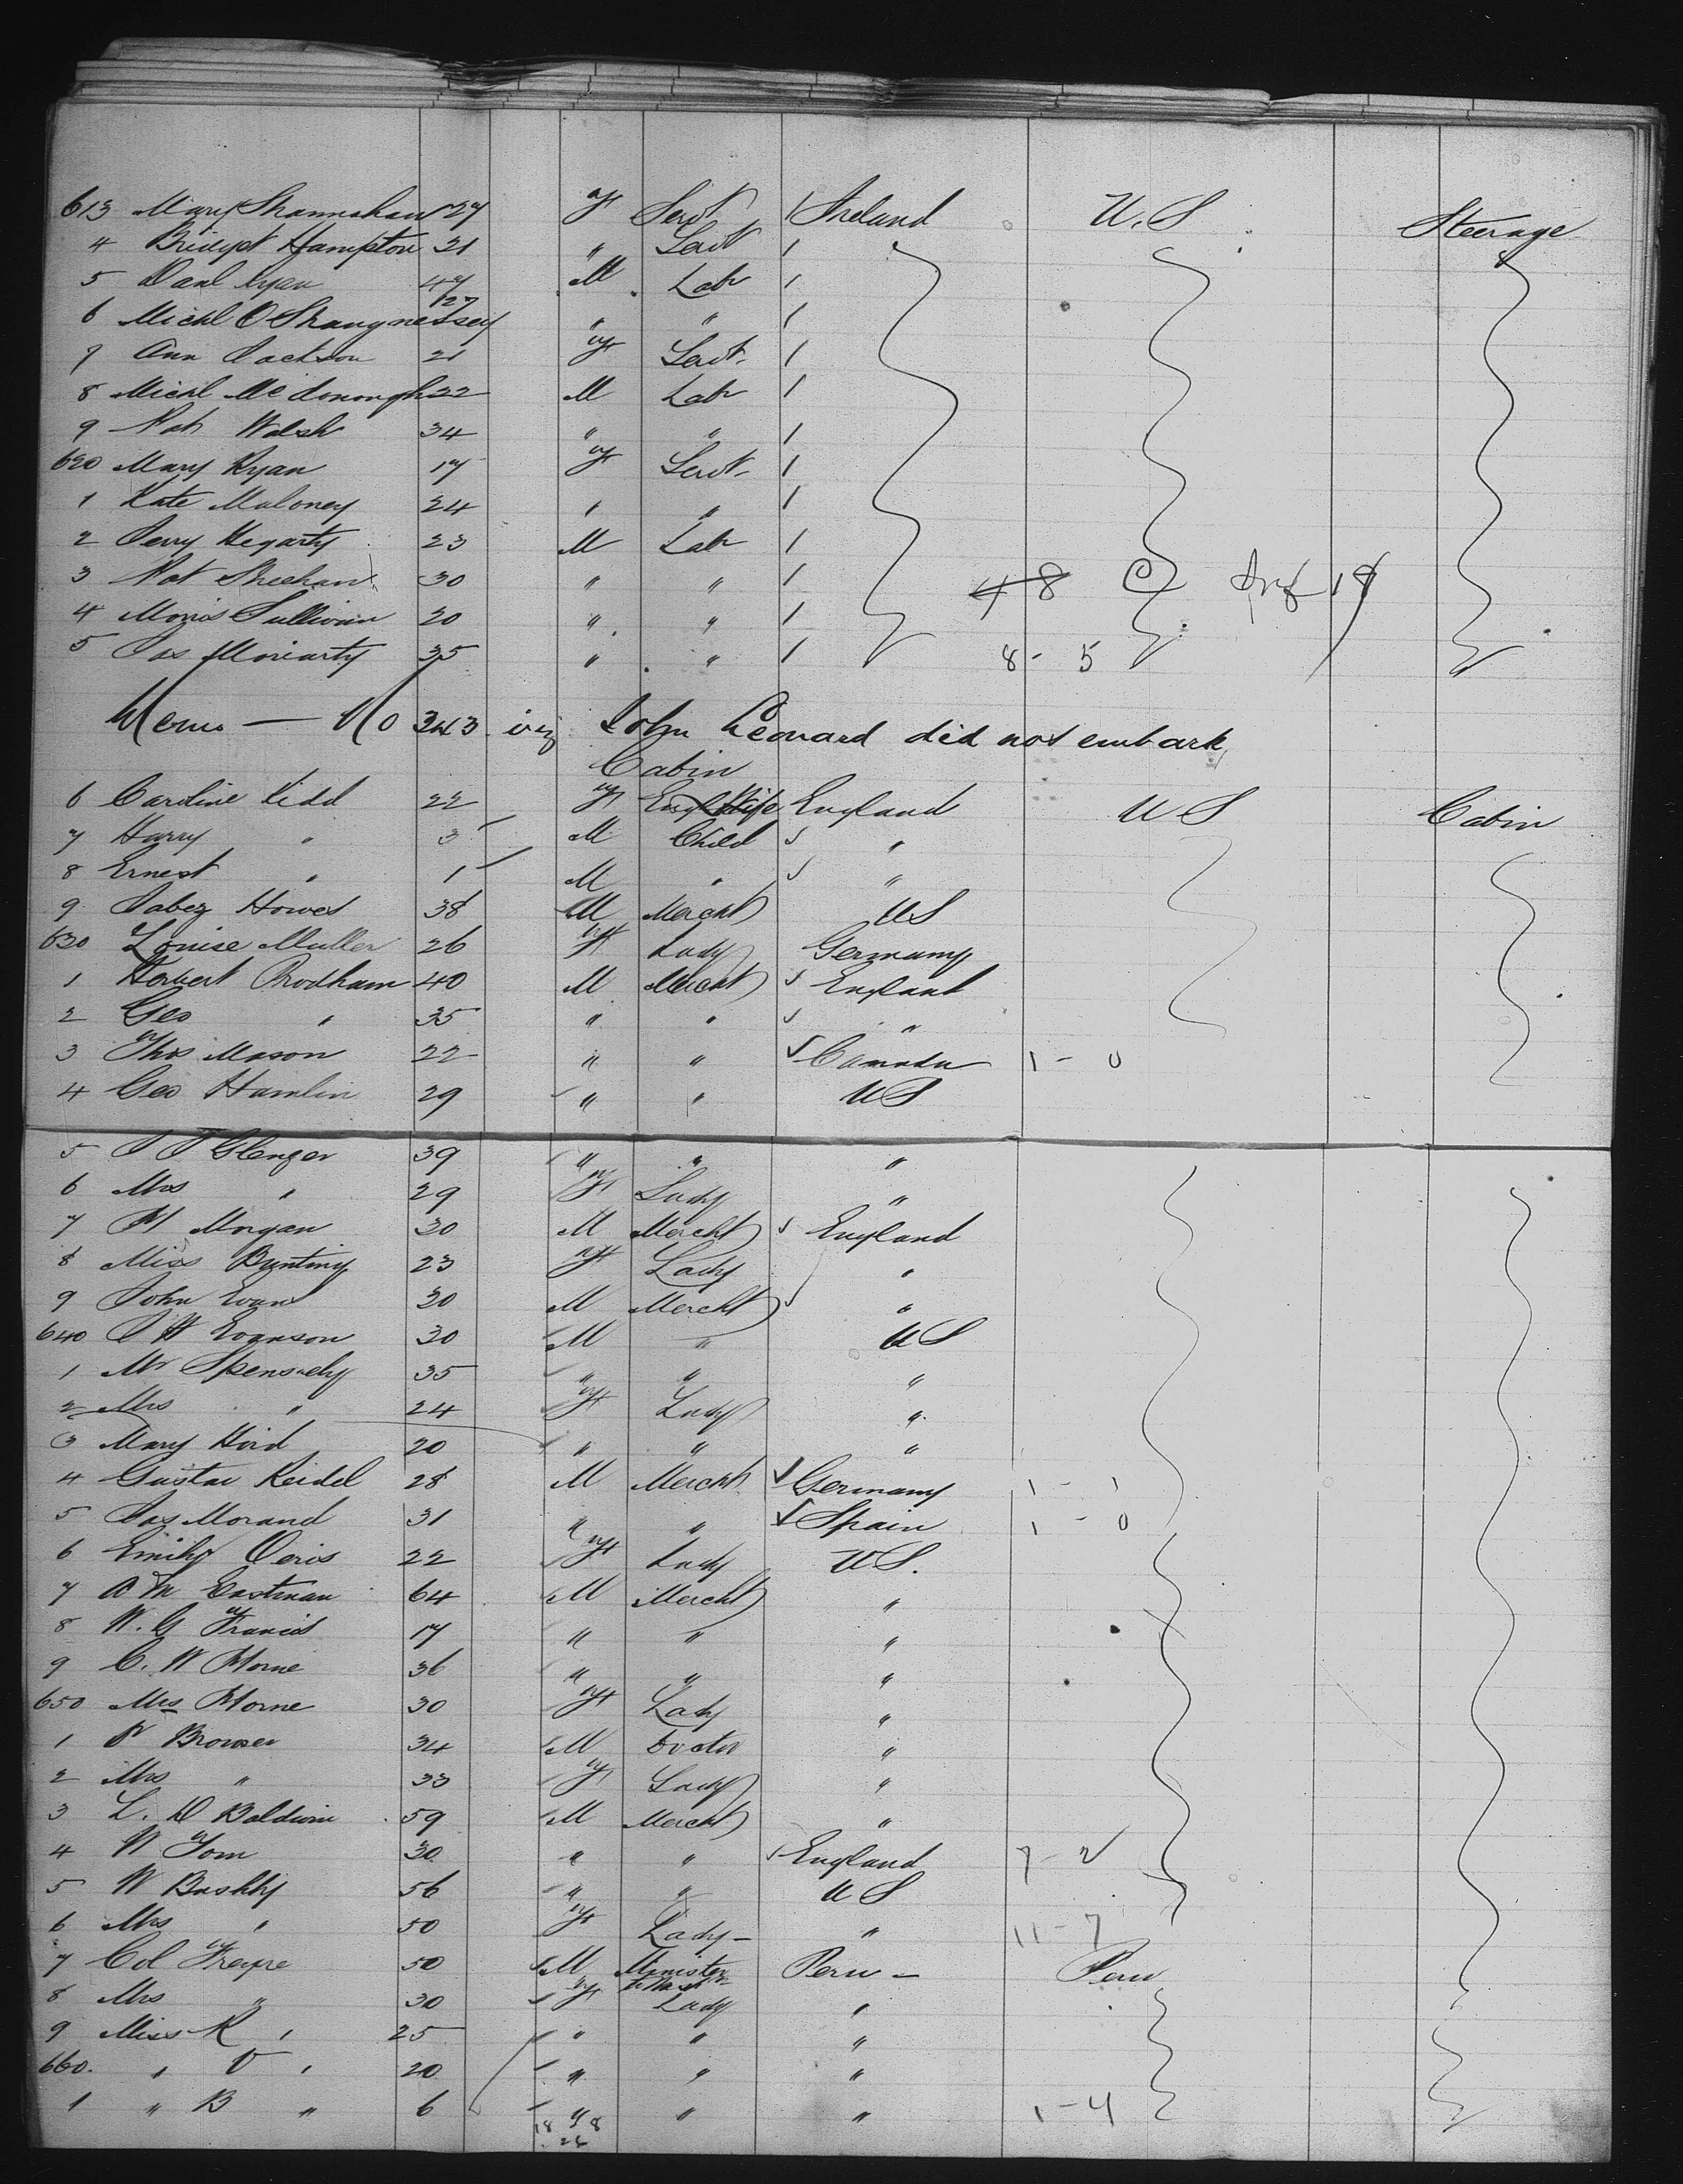 613 Mary Shannahan 27 F Servt Ireland U.S Steerage
4 Bridget Hampton 21 " Servt
5 Danl Ryan 47 M Labr
6 Michl O'Shaugnessey 27 " "
7 Ann Jackson 21 F Servt
8 Michl McDonough 22 M Labr
9 Pat Walsh 34 " "
620 Mary Ryan 17 F Servt
1 Kate Maloney 24 " "
2 Jerry Hegarty 23 M Labr
3 Pat Sheehan 30 " " 48
4 Morris Sullivan 20 " "
5 Jas Moriarty 35 " " 8 - 5
Memo — No 343 viz John Leonard did not embark
Cabin
6 Caroline Kidd 22 F Wife England U S Cabin
7 Harry " 3 M Child "
8 Ernest " 1 M " "
9 Jabez Howes 38 M Mercht US
630 Louise Muller 26 F Lady Germany
1 Herbert Prodham 40 M Mercht England
2 Geo " 35 " " "
3 Thos Mason 22 " " Canada 1 - 0
4 Geo Hamlin 29 " " US
5 J J Glenzer 39 " " "
6 Mrs " 29 F Lady "
7 H Morgan 30 M Mercht England
8 Miss Bunting 23 F Lady "
9 John Evans 30 M Mercht "
640 J H Evanson 30 M " US
1 Mr Spensely 35 " " "
2 Mrs " 24 F Lady "
3 Mary Hoid 20 " " "
4 Gustav Keidel 28 M Mercht Germany 1 - 1
5 Jas Morand 31 " " Spain 1 - 0
6 Emily Veris 22 F Lady US.
7 A M Eastman 64 M Mercht "
8 W. G Francis 17 " " "
9 C. W Horne 36 " " "
650 Mrs Horne 30 F Lady "
1 P Browser 34 M Doctor "
2 Mrs " 33 F Lady "
3 L. D Baldwin 59 M Mercht "
4 W Tom 30 " " England 7 - 2
5 W Bashly 56 " " U S
6 Mrs " 50 F Lady - " 11 - 7
7 Col Freyre 50 M Minister Peru - Peru
8 Mrs " 30 F Lady "
9 Miss R " 25 " " "
660. " V " 20 " " "
1 " B " 6 " " " 1 - 4